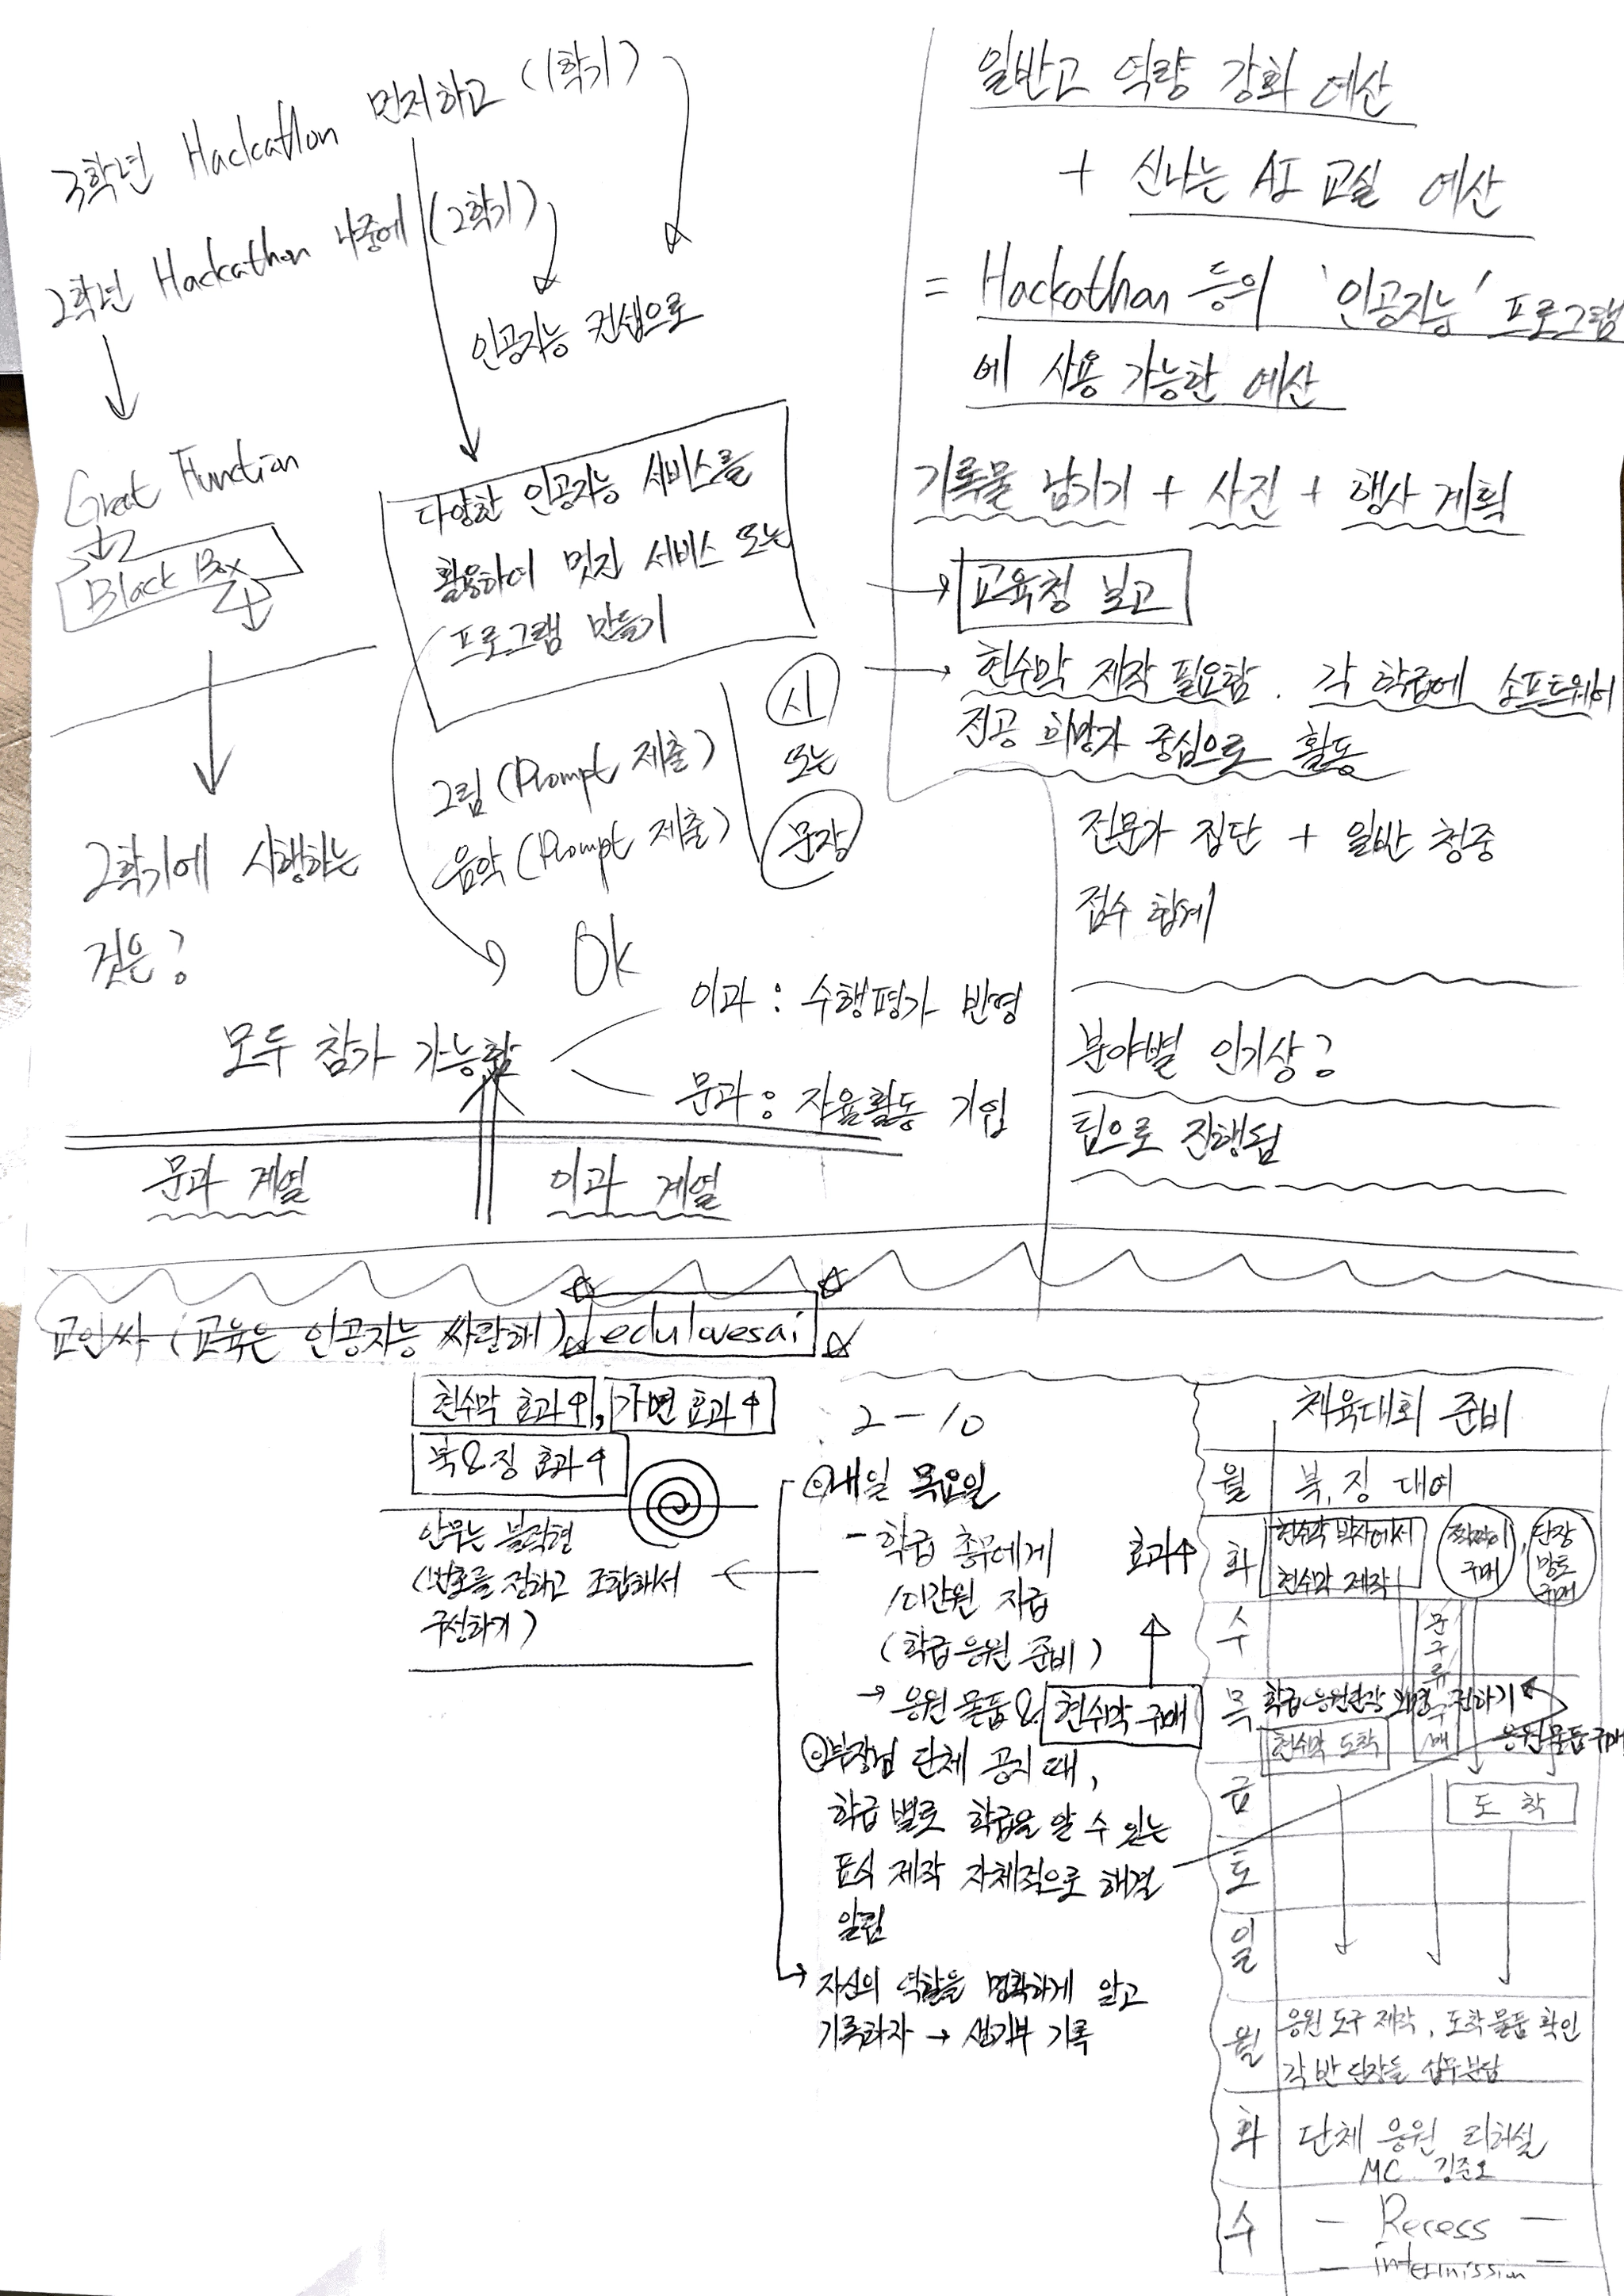 3학년 Hackathon 먼저하고 (1학기)
2학년 Hackathon 나중에 (2학기)
인공지능 컨셉으로
Great Function
Black Box
다양한 인공지능 서비스를
활용하여 멋진 서비스 또는
프로그램 만들기
그림 (Prompt 제출)
음악 (Prompt 제출)
시
또는
문장
2학기에 시행하는
것은?
Ok
모두 참가 가능함
이과 : 수행평가 반영
문과 : 자율활동 기입
문과 계열
이과 계열
일반고 역량 강화 예산
+ 신나는 AI 교실 예산
= Hackathon 등의 '인공지능' 프로그램
에 사용 가능한 예산
기록물 남기기 + 사진 + 행사 계획
교육청 보고
현수막 제작 필요함. 각 학급에 소프트웨어
전공 희망자 중심으로 활동
전문가 집단 + 일반 청중
점수 합계
분야별 인기상?
팀으로 진행됨
교인싸 (교육은 인공지능 싸랑해)
edulovesai
현수막 효과↑, 가면 효과↑
북&징 효과↑
안무는 블럭형
(번호를 정하고 조합해서
구성하기)
2-10
내일 목요일
- 학급 총무에게
지급
(학급 응원 준비)
→ 응원 물품 & 현수막 구매
효과↑
부장님 단체 공지 때,
학급별로 학급을 알 수 있는
표식 제작 자체적으로 해결
알림
자신의 역할을 명확하게 알고
기록하자 → 생기부 기록
체육대회 준비
월 북, 징 대여
화 현수막 박사에서
현수막 제작
구매
단장
망토
구매
수
문구류 구매
목 학급 응원단장
현수막 도착
응원물품 구매
금 도착
토
일
월 응원 도구 제작, 도착 물품 확인
각 반 단장들 업무분담
화 단체 응원 리허설
MC 김준오
수 - Recess -
- intermission -